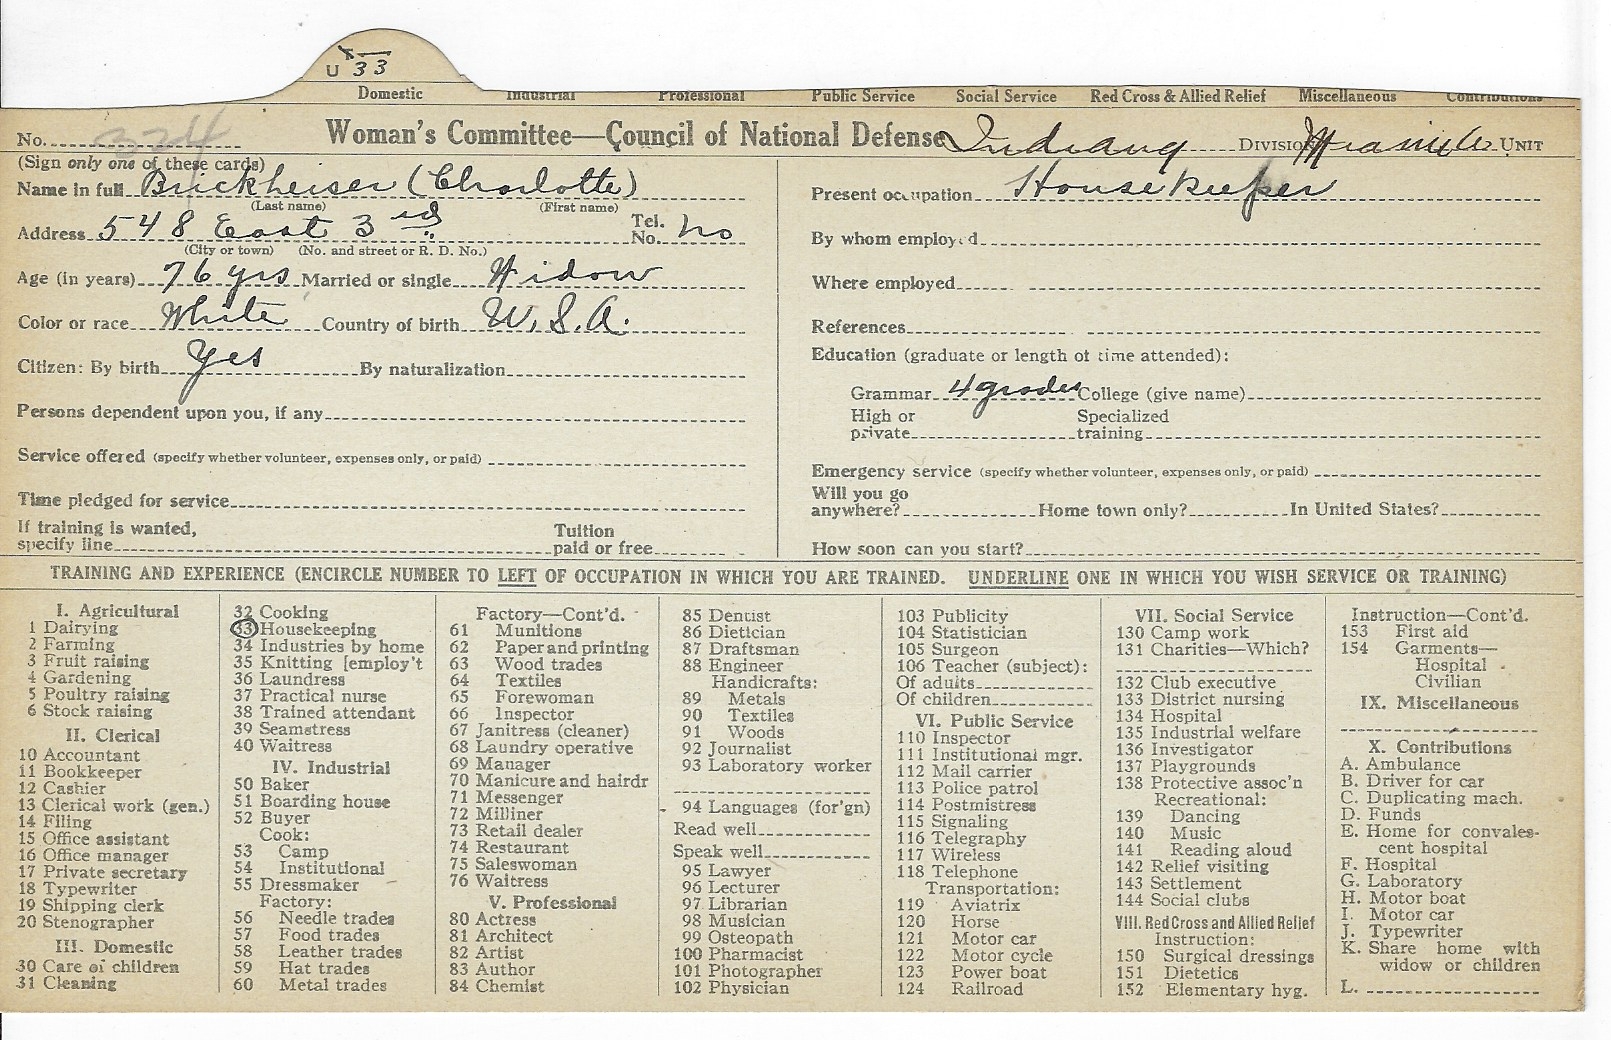 U X 33
Domestic Industrial Professional Public Service Social Service Red Cross & Allied Relief Miscellaneous Contributions
No. 324 Woman's Committee—Council of National Defense Indiana DIVISION UNIT
(Sign only one of these cards)
Name in full Brickheiser (Charlotte)
(Last name) (First name)
Address 548 East 3rd Tel. No. No
(City or town) (No. and street or R. D. No.)
Age (in years) 76 yrs Married or single Widow
Color or race White Country of birth U.S.A.
Citizen: By birth Yes By naturalization
Persons dependent upon you, if any
Service offered (specify whether volunteer, expenses only, or paid)
Time pledged for service
If training is wanted, specify line Tuition paid or free
Present occupation House Keeper
By whom employed
Where employed
References
Education (graduate or length of time attended):
Grammar 4 grades College (give name)
High or private Specialized training
Emergency service (specify whether volunteer, expenses only, or paid)
Will you go anywhere? Home town only? In United States?
How soon can you start?
TRAINING AND EXPERIENCE (ENCIRCLE NUMBER TO LEFT OF OCCUPATION IN WHICH YOU ARE TRAINED. UNDERLINE ONE IN WHICH YOU WISH SERVICE OR TRAINING)
I. Agricultural
1 Dairying
2 Farming
3 Fruit raising
4 Gardening
5 Poultry raising
6 Stock raising
II. Clerical
10 Accountant
11 Bookkeeper
12 Cashier
13 Clerical work (gen.)
14 Filing
15 Office assistant
16 Office manager
17 Private secretary
18 Typewriter
19 Shipping clerk
20 Stenographer
III. Domestic
30 Care of children
31 Cleaning
32 Cooking
33 Housekeeping
34 Industries by home
35 Knitting [employ't
36 Laundress
37 Practical nurse
38 Trained attendant
39 Seamstress
40 Waitress
IV. Industrial
50 Baker
51 Boarding house
52 Buyer
Cook:
53 Camp
54 Institutional
55 Dressmaker
Factory:
56 Needle trades
57 Food trades
58 Leather trades
59 Hat trades
60 Metal trades
Factory—Cont'd.
61 Munitions
62 Paper and printing
63 Wood trades
64 Textiles
65 Forewoman
66 Inspector
67 Janitress (cleaner)
68 Laundry operative
69 Manager
70 Manicure and hairdr
71 Messenger
72 Milliner
73 Retail dealer
74 Restaurant
75 Saleswoman
76 Waitress
V. Professional
80 Actress
81 Architect
82 Artist
83 Author
84 Chemist
85 Dentist
86 Dietician
87 Draftsman
88 Engineer
Handicrafts:
89 Metals
90 Textiles
91 Woods
92 Journalist
93 Laboratory worker
94 Languages (for'gn)
Read well
Speak well
95 Lawyer
96 Lecturer
97 Librarian
98 Musician
99 Osteopath
100 Pharmacist
101 Photographer
102 Physician
103 Publicity
104 Statistician
105 Surgeon
106 Teacher (subject):
Of adults
Of children
VI. Public Service
110 Inspector
111 Institutional mgr.
112 Mail carrier
113 Police patrol
114 Postmistress
115 Signaling
116 Telegraphy
117 Wireless
118 Telephone
Transportation:
119 Aviatrix
120 Horse
121 Motor car
122 Motor cycle
123 Power boat
124 Railroad
VII. Social Service
130 Camp work
131 Charities—Which?
132 Club executive
133 District nursing
134 Hospital
135 Industrial welfare
136 Investigator
137 Playgrounds
138 Protective assoc'n
Recreational:
139 Dancing
140 Music
141 Reading aloud
142 Relief visiting
143 Settlement
144 Social clubs
VIII. Red Cross and Allied Relief
Instruction:
150 Surgical dressings
151 Dietetics
152 Elementary hyg.
Instruction—Cont'd.
153 First aid
154 Garments—
Hospital
Civilian
IX. Miscellaneous
X. Contributions
A. Ambulance
B. Driver for car
C. Duplicating mach.
D. Funds
E. Home for convales-
cent hospital
F. Hospital
G. Laboratory
H. Motor boat
I. Motor car
J. Typewriter
K. Share home with
widow or children
L.